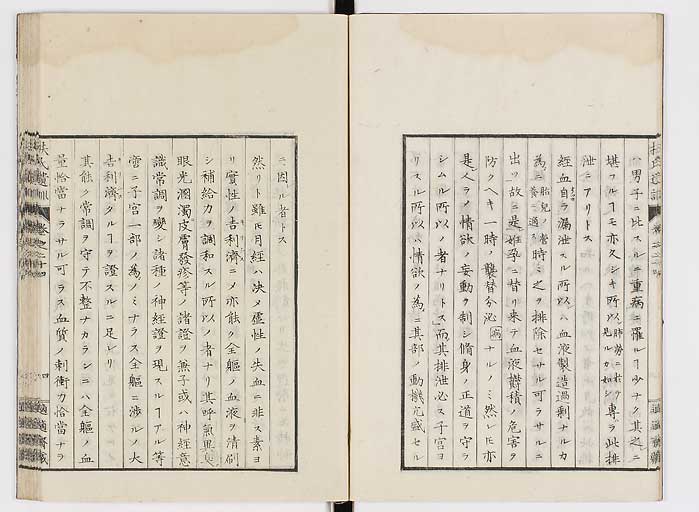 ハ男子ニ比スルニ重病ニ罹ルヿ少ナク其之ニ
堪フルヿモ亦久シキ所以肺勞ニ於テ見ルカ如シ専ラ此排
泄ニアリトス
經血自ラ漏泄スル所以ハ血液製造過剰ナルカ
為ニ胎兒ノ営養ニ過ル當時ミ之ヲ排除セサル可ラサルニ
出ツ故ニ是妊孕ニ替リ来テ血液鬱積ノ危害ヲ
防クヘキ一時ノ襲替分泌病ナルノミ然レ𪜈亦
是人ラノ情欲ノ妄動ヲ制シ脩身ノ正道ヲ守ラ
シムル所以ノ者ナリトス而其排泄必ス子宮ヨ
リスル所以ハ情欲ノ為ニ其部ノ動機亢盛セル
ニ因ル者トス
然リト雖𪜈月經ハ决メ虚性ノ失血ニ非ス素ヨ
リ實性ノ吉利濟ニメ亦能ク全軀ノ血液ヲ清刷
シ補給力ヲ調和スル所以ノ者ナリ其呼氣臭
眼光溷濁皮膚發疹等ノ諸證ヲ兼子或ハ神經意
識常調ヲ變シ諸種ノ神經證ヲ現スルヿアル等
啻ニ子宮一部ノ為ノミナラス全軀ニ渉ルノ大
吉利濟タルヿヲ證スルニ足レリ
其能ク常調ヲ守テ不整ナカランニハ全軀ノ血
量恰當ナラサル可ラス血質ノ刺衝力恰當ナラ
扶氏遺訓 巻之二十四
四
適適齋藏